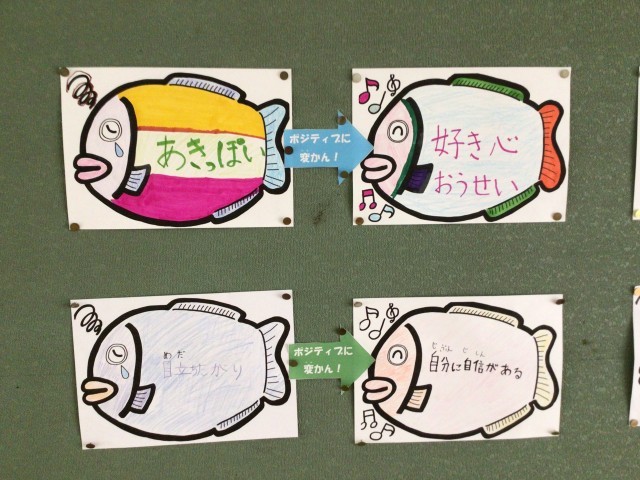 あきっぽい
ポジティブに
変かん！
好き心
おうせい
めだ
目立ちたがり
ポジティブに
変かん！
じぶん じしん
自分に自信がある